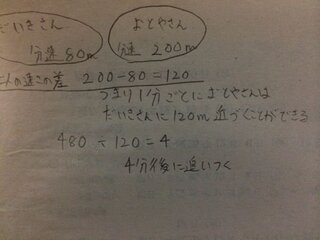 だいきさん おとやさん
分速80m 分速 200m
二人の速さの差 200-80=120
つまり1分ごとにおとやさんは
だいきさんに120m近づくことができる
480÷120=4
4分後に追いつく